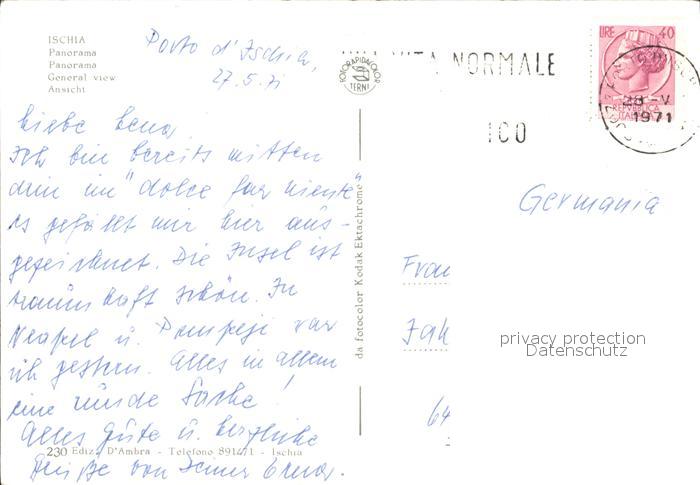 ISCHIA
Panorama
Panorama
General view
Ansicht
Porto d'Ischia,
27.5.71
Liebe Lena,
Ich bin bereits mitten
drin im "dolce far niente"
Es gefällt mir hier aus-
gezeichnet. Die Insel ist
traumhaft schön. In
Neapel u. Pompeji war
ich gestern. Alles in allem
eine runde Sache!
Alles Gute u. herzliche
Grüße von Deiner
230 Ediz. D'Ambra - Telefono 891471 - Ischia
da fotocolor Kodak Ektachrome
FOTORAPIDACOLOR
TERNI
VITA NORMALE
ICO
LIRE 40
REPVBBLICA
ITALIANA
28-V
1971
Germania
Frau
Jak
64
privacy protection
Datenschutz